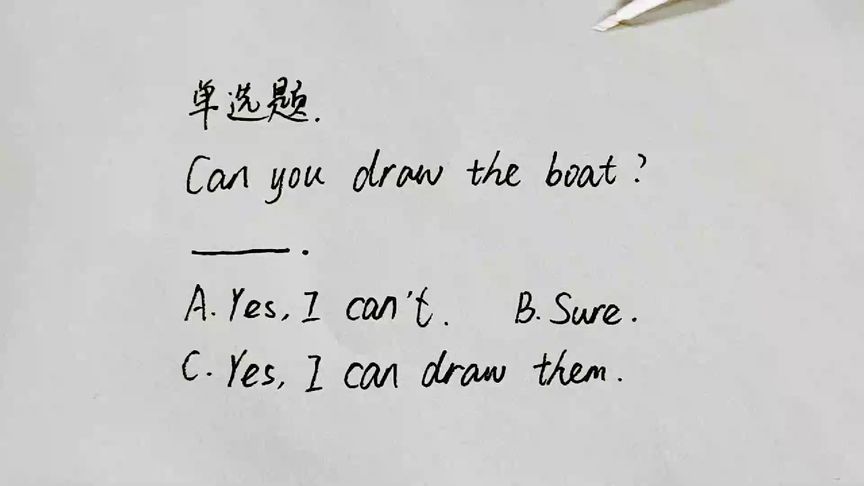 单选题.
Can you draw the boat?
____.
A. Yes, I can't. B. Sure.
C. Yes, I can draw them.